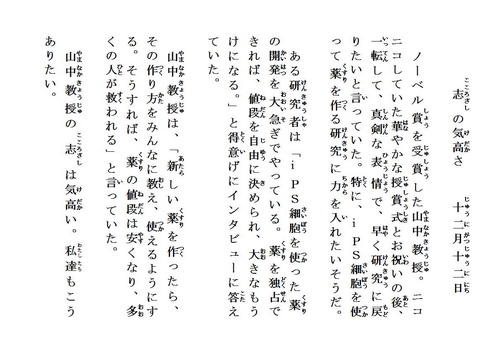 志の気高さ　　十二月十二日
ノーベル賞を受賞した山中教授。ニコ
ニコしていた華やかな授賞式とお祝いの後、
一転して、真剣な表情で、早く研究に戻
りたいと言っていた。特に、iPS細胞を使
って薬を作る研究に力を入れたいそうだ。
ある研究者は「iPS細胞を使った薬
の開発を大急ぎでやっている。薬を独占で
きれば、値段を自由に決められ、大きなもう
けになる。」と得意げにインタビューに答え
ていた。
山中教授は、「新しい薬を作ったら、
その作り方をみんなに教え、使えるようにす
る。そうすれば、薬の値段は安くなり、多
くの人が救われる」と言っていた。
山中教授の志は気高い。私達もこう
ありたい。